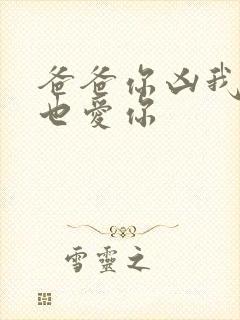 爸爸你凶我
也愛你
雪靈之